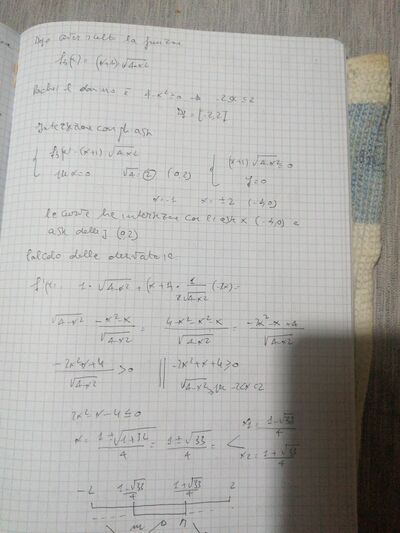 Dopo aver scelto la funzione
f₂(x) = (x+1)·√4-x²
Poiché il dominio è 4-x² ≥ 0 → -2≤x≤2
D = [-2,2]
Intersezione con gli assi
{ f₂(x) = (x+1)·√4-x² { (x+1)√4-x² = 0
per x=0 √4 = 2 (0,2) y=0
x=-1 x=±2 (-1,0)
le curve ha intersezione con l'asse x (-1,0) e
asse delle y (0,2)
Calcolo delle derivate
f'(x) = 1·√4-x² + (x+1)· (-2x) =
√4-x² -x²-x / √4-x² = 4-x²-x²-x / √4-x² = -2x²-x+4 / √4-x²
-2x²-x+4 / √4-x² > 0 || -2x²-x+4 ≥ 0
√4-x² per -2<x<2
2x² x-4 ≤ 0
x = 1±√1+32 / 4 = 1±√33 / 4 = < x₁ = 1-√33 / 4
x₂ = 1+√33 / 4
-2 1-√33 / 4 1+√33 / 4 2
m 0 n